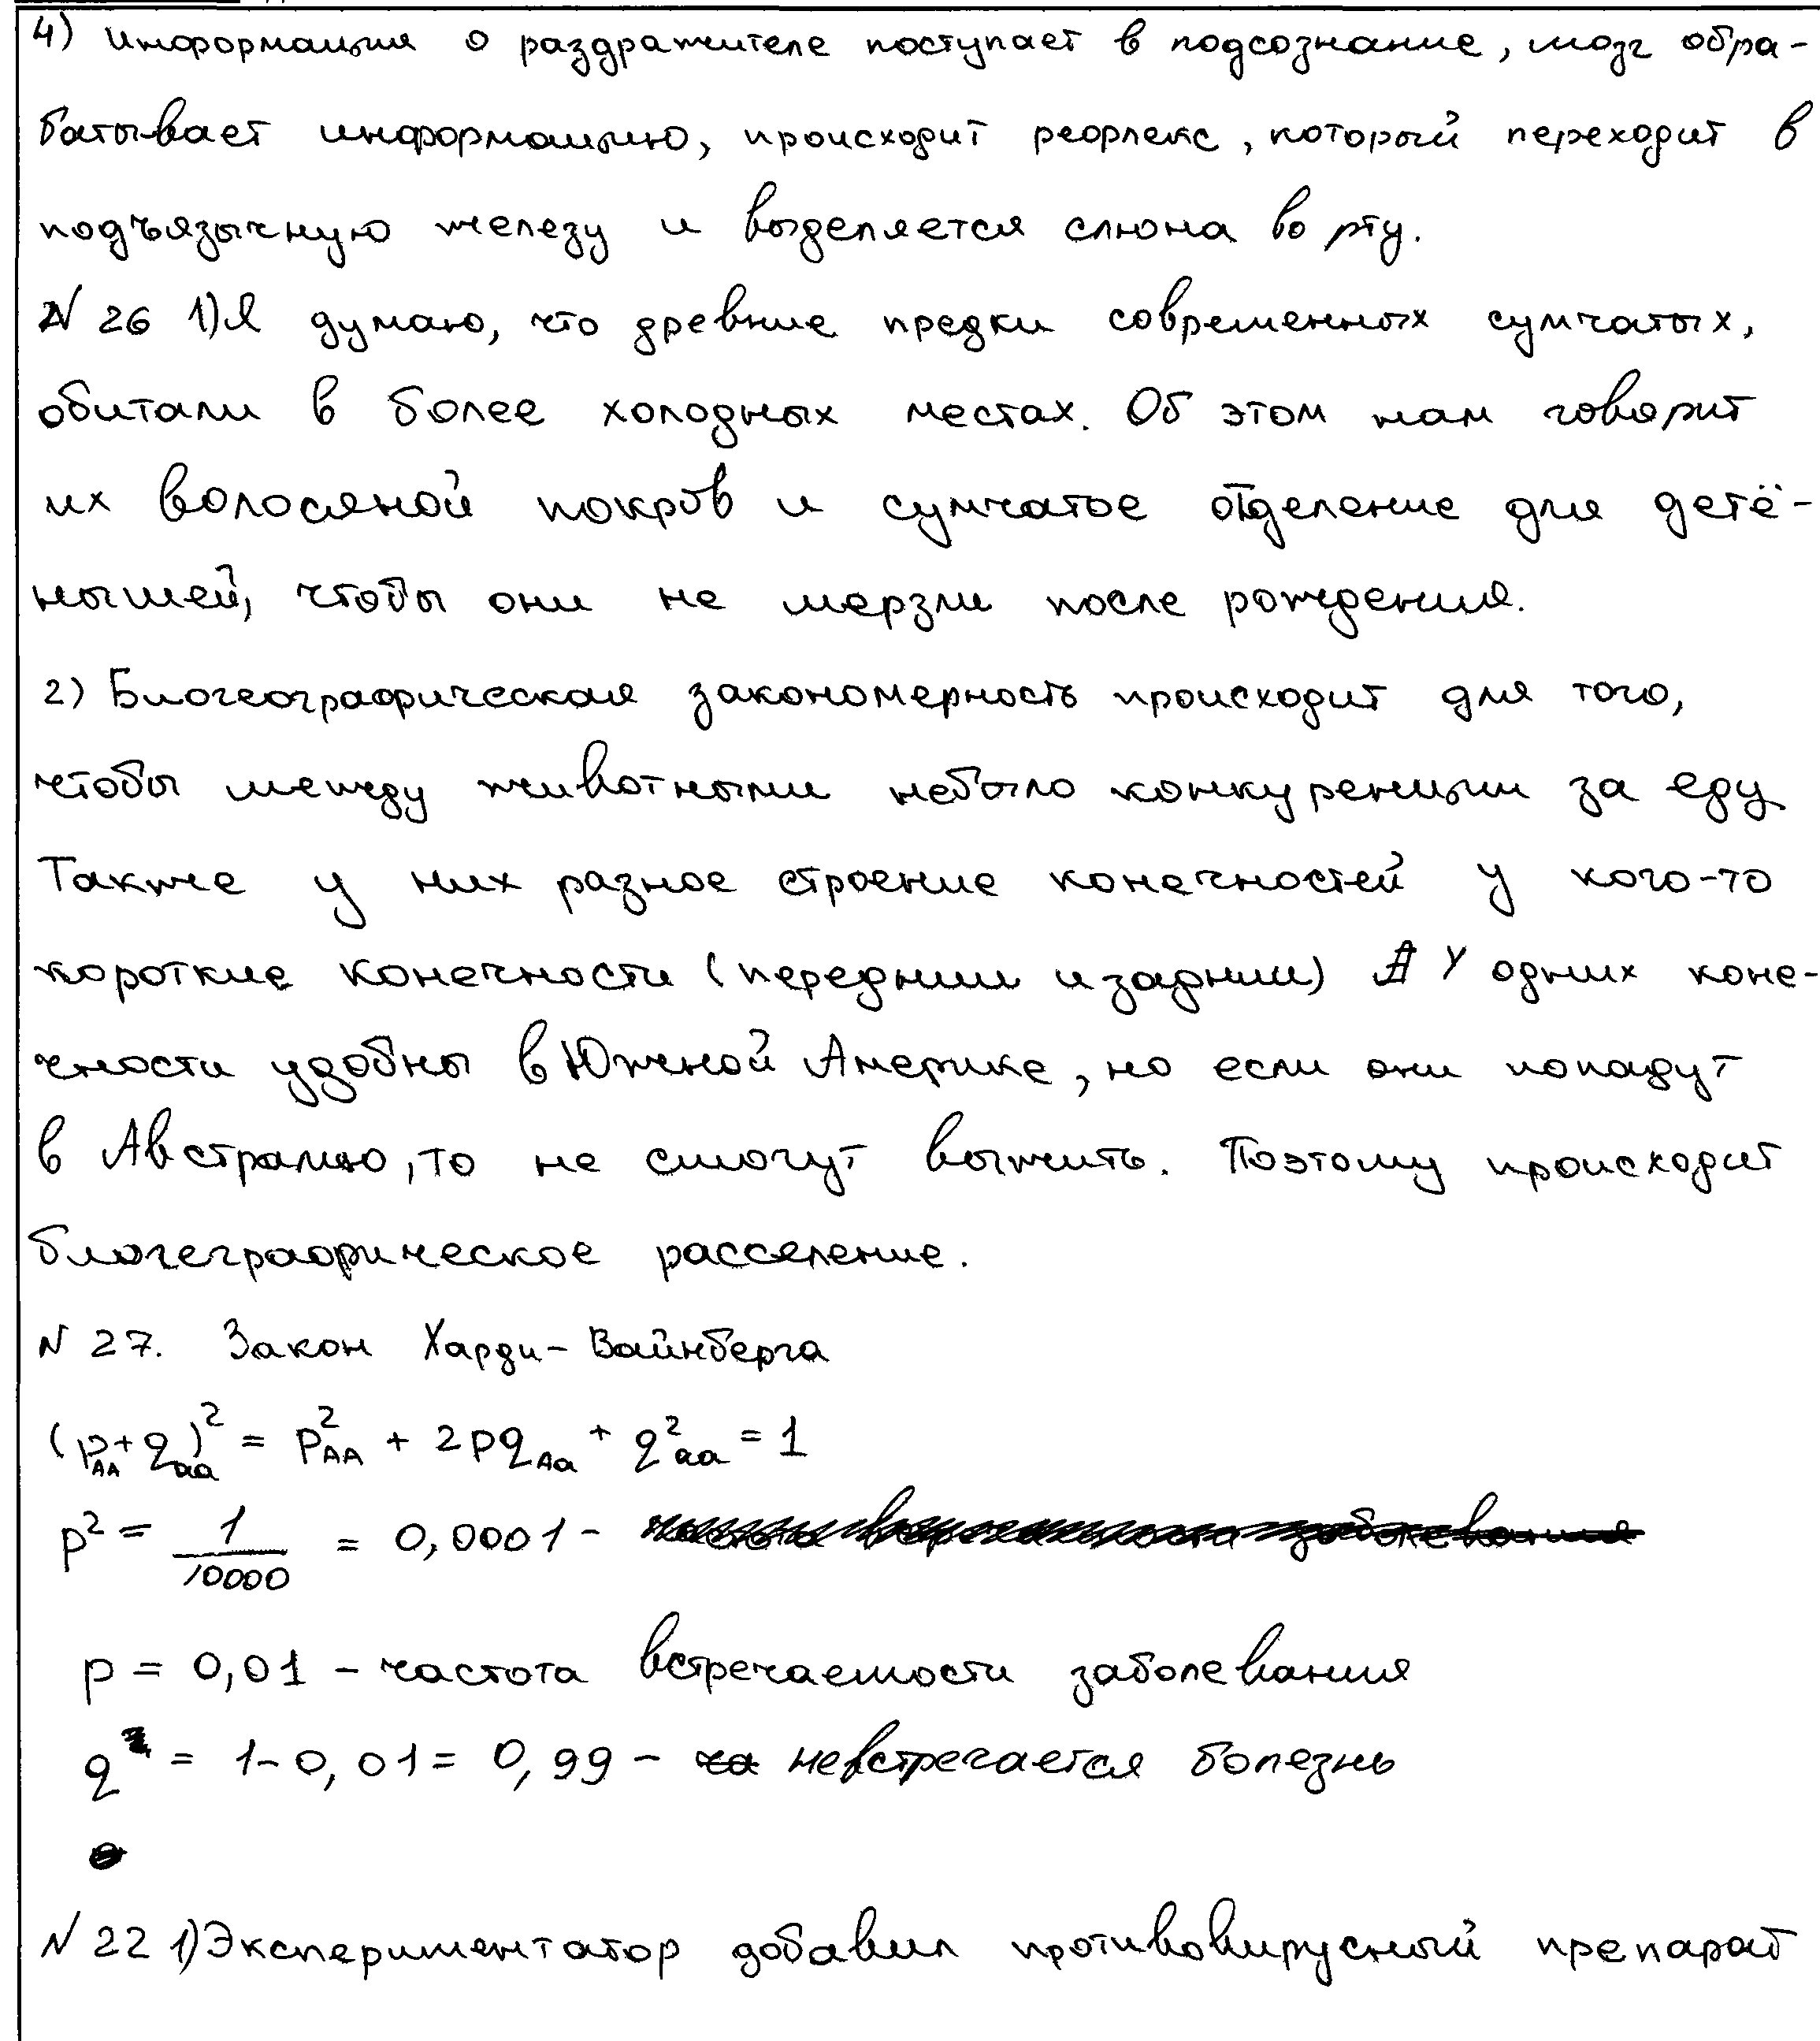 4) Информация о раздражителе поступает в подсознание, мозг обра-
батывает информацию, происходит рефлекс, который переходит в
подъязычную железу и выделяется слюна во рту.
N 26 1) Я думаю, что древние предки современных сумчатых,
обитали в более холодных местах. Об этом нам говорит
их волосяной покров и сумчатое отделение для детё-
нышей, чтобы они не мерзли после рождения.
2) Биогеографическая закономерность происходит для того,
чтобы между животными небыло конкуренции за еду.
Также у них разное строение конечностей у кого-то
короткие конечности (переднии и заднии) У одних коне-
чности удобны в Южной Америке, но если они попадут
в Австралию, то не смогут выжить. Поэтому происходит
биогеграфическое расселение.
N 27. Закон Харди-Вайнберга
(p_AA + q_aa)² = p²_AA + 2pq_Aa + q²_aa = 1
p² = 1/10000 = 0,0001 -
p = 0,01 - частота встречаемости заболевания
q = 1-0,01 = 0,99 - невстречается болезнь
N 22 1) Экспериментатор добавил противовирусный препарат